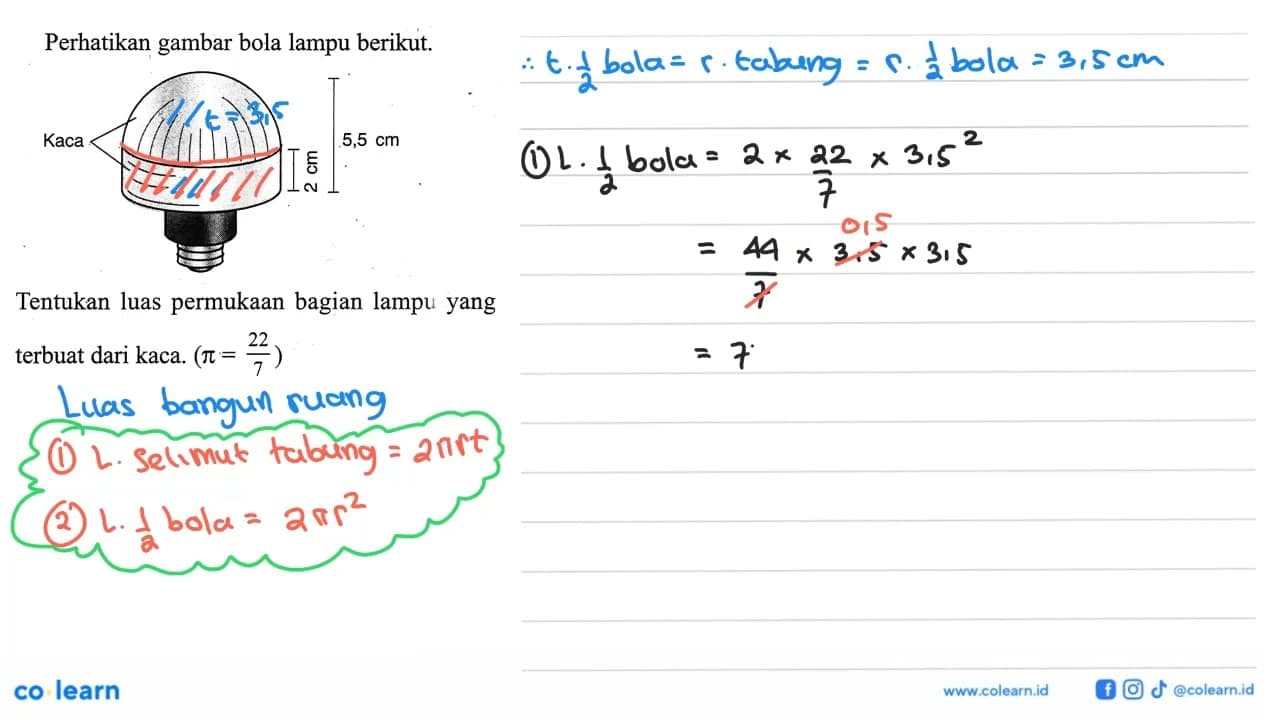 Perhatikan gambar bola lampu berikut.
Kaca
t = 3,5
2 cm
5,5 cm
Tentukan luas permukaan bagian lampu yang
terbuat dari kaca. (π = 22/7)
Luas bangun ruang
① L. selimut tabung = 2πrt
② L. 1/2 bola = 2πr²
∴ t. 1/2 bola = r. tabung = r. 1/2 bola = 3,5 cm
① L. 1/2 bola = 2 × 22/7 × 3,5²
0,5
= 44/7 × 3,5 × 3,5
= 7
co learn
www.colearn.id
@colearn.id